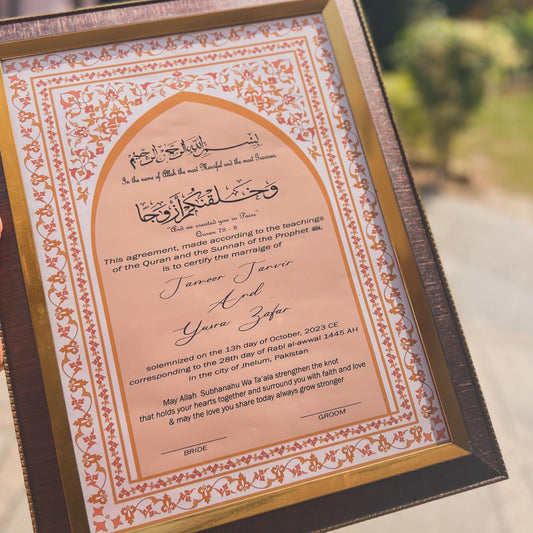 بسم الله الرحمن الرحيم
In the name of Allah the most Merciful and the most Gracious.
وخلقنكم أزوجا
"And we created you in Pairs"
Quran 78 - 8
This agreement, made according to the teachings
of the Quran and the Sunnah of the Prophet ﷺ
is to certify the marraige of
Tamoor Tanvir
And
Yusra Zafar
solemnized on the 13h day of October, 2023 CE
corresponding to the 28th day of Rabi al-awwal 1445 AH
in the city of Jhelum, Pakistan
May Allah Subhanahu Wa Ta'ala strengthen the knot
that holds your hearts together and surround you with faith and love
& may the love you share today always grow stronger
BRIDE
GROOM